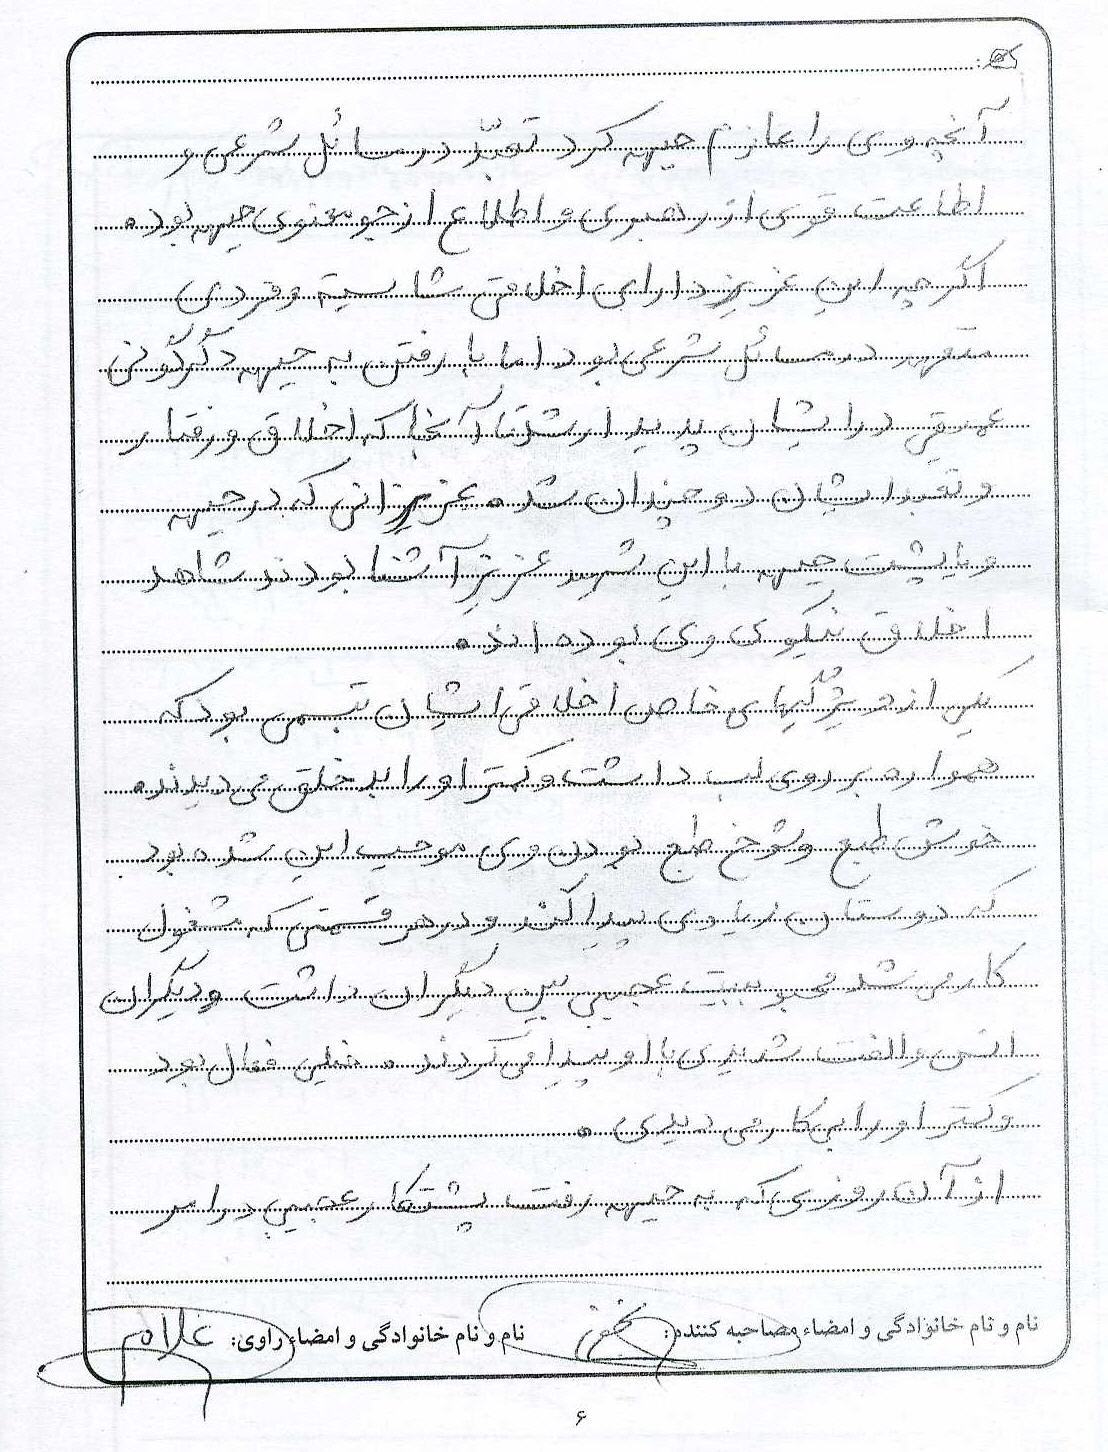 آنچه وی را عازم جبهه کرد تعبّد در مسائل شرعی و
اطاعت قوی از رهبری و اطلاع از جو معنوی جبهه بوده
اگر چه این عزیز دارای اخلاقی شایسته و فردی
متعهد در مسائل شرعی بود اما با رفتن به جبهه دگرگونی
عمیقی در ایشان پدیدار شد تا آنجا که اخلاق و رفتار
و تعبد ایشان دو چندان شده عزیزانی که در جبهه
و یا پشت جبهه با این شهید عزیز آشنا بودند شاهد
اخلاق نیکوی وی بوده اند.
یکی از ویژگیهای خاص اخلاقی ایشان تبسمی بود که
همواره بر روی لب داشت و کمتر او را بد خلق می دیدند.
خوش طبع و شوخ طبع بودن وی موجب این شده بود
که دوستان زیادی پیدا کند و در هر قسمتی که مشغول
کار می شد محبوبیت عجیبی بین دیگران داشت و دیگران
انس و الفت شدیدی با او پیدا می کردند. خیلی فعال بود
و کمتر او را بی کار می دیدی.
از آن روزی که به جبهه رفت پشتکار عجیبی در امر
نام و نام خانوادگی و امضاء مصاحبه کننده: نام و نام خانوادگی و امضاء راوی:
۶